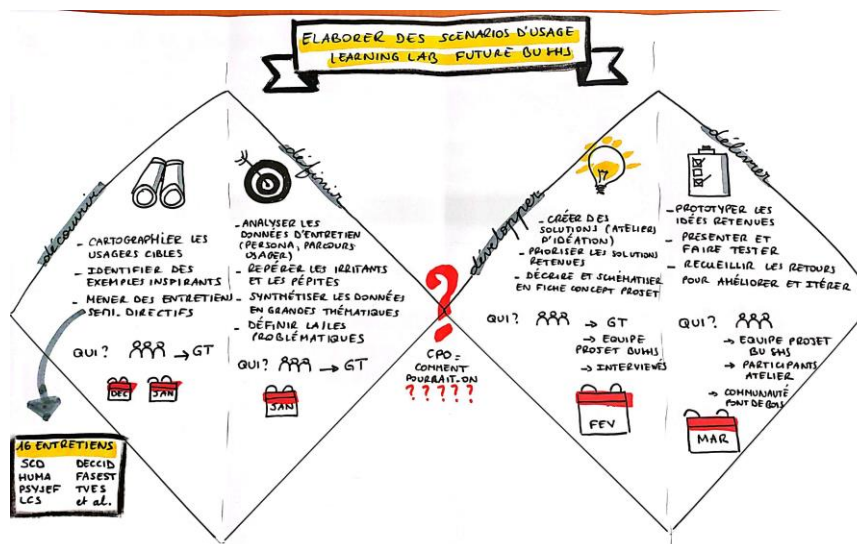 ELABORER DES SCENARIOS D'USAGE
LEARNING LAB FUTURE BU SHS
découvrir
- CARTOGRAPHIER LES
USAGERS CIBLES
- IDENTIFIER DES
EXEMPLES INSPIRANTS
- MENER DES ENTRETIENS
SEMI-DIRECTIFS
QUI ? → GT
DEC
JAN
16 ENTRETIENS
SCD DECCID
HUMA FASEST
PSYSEF TVES
LCS et al.
définir
- ANALYSER LES
DONNÉES D'ENTRETIEN
(PERSONA, PARCOURS
USAGER)
- REPÉRER LES IRRITANTS
ET LES PÉPITES
- SYNTHÉTISER LES DONNÉES
EN GRANDES THÉMATIQUES
- DÉFINIR LA/LES
PROBLÉMATIQUES
QUI ? → GT
JAN
?
CPO =
COMMENT
POURRAIT-ON
? ? ? ? ?
développer
- CRÉER DES
SOLUTIONS (ATELIERS
D'IDÉATION)
- PRIORISER LES SOLUTIONS
RETENUES
- DÉCRIRE ET SCHÉMATISER
EN FICHE CONCEPT PROJET
QUI ? → GT
→ EQUIPE
PROJET BU SHS
→ INTERVIEWÉS
FEV
délivrer
- PROTOTYPER LES
IDÉES RETENUES
- PRESENTER ET
FAIRE TESTER
- RECUEILLIR LES RETOURS
POUR AMÉLIORER ET ITÉRER
QUI ?
→ EQUIPE PROJET
BU SHS
→ PARTICIPANTS
ATELIER
→ COMMUNAUTÉ
PONT DE BOIS
MAR